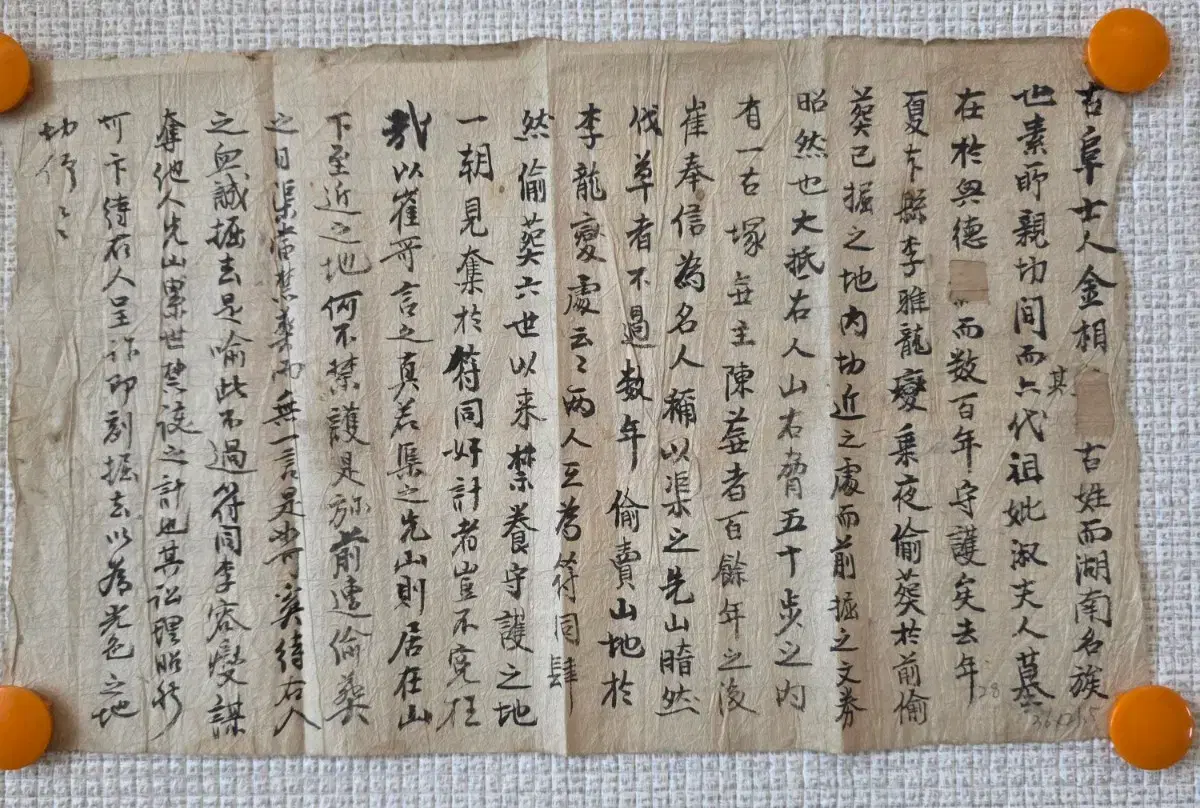 古阜士人金相 古姓而湖南名族
也素所親切間而其六代祖妣淑夫人墓
在於興德 而数百年守護矣去年
夏本縣李雅龍燮乗夜偷葬於前偷
葬已掘之地内切近之處而前掘之文券
昭然也大抵右人山右脅五十步之内
有一古塚無主陳荒者百餘年之後
崔奉信為名人稱以渠之先山暗然
伐草者不過数年偷賣山地於
李龍燮處云〻兩人互為符同肆
然偷葬六世以来禁養守護之地
一朝見奪於符同奸計者豈不寃枉
哉以崔哥言之真若渠之先山則居在山
下至近之地何不禁護是旀前遭偷葬
之日渠當禁葬而無一言是如可寃待右人
之血誠掘去是喻此不過符同李容燮謀
奪他人先山累世禁護之計也其訟理昭然
可卞待右人呈訴即刻掘去以為光色之地
切仰〻